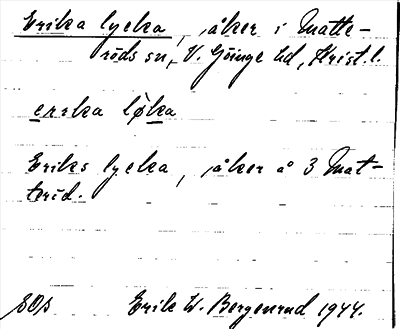 Erika lycka, åker i Matte-
röds sn, V. Göinge hd, Krist. l.
erika løka
Eriks lycka, åker å 3 Mat-
teröd.
Erik W. Bergenrud 1944.